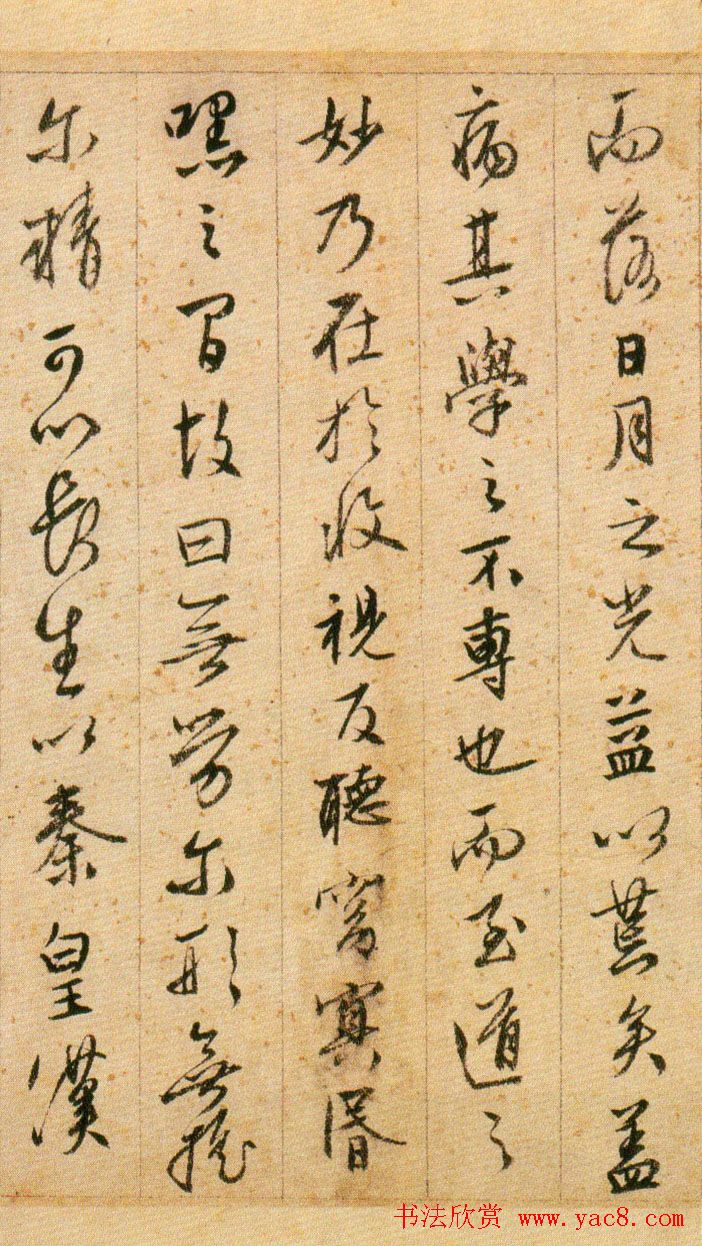 而落日月之光益以荒矣蓋
病其學之不專也而至道之
妙乃在於收視反聽窈冥昏
嘿之間故曰無勞尔形無搖
尔精可以長生以秦皇漢
书法欣赏 www.yac8.com